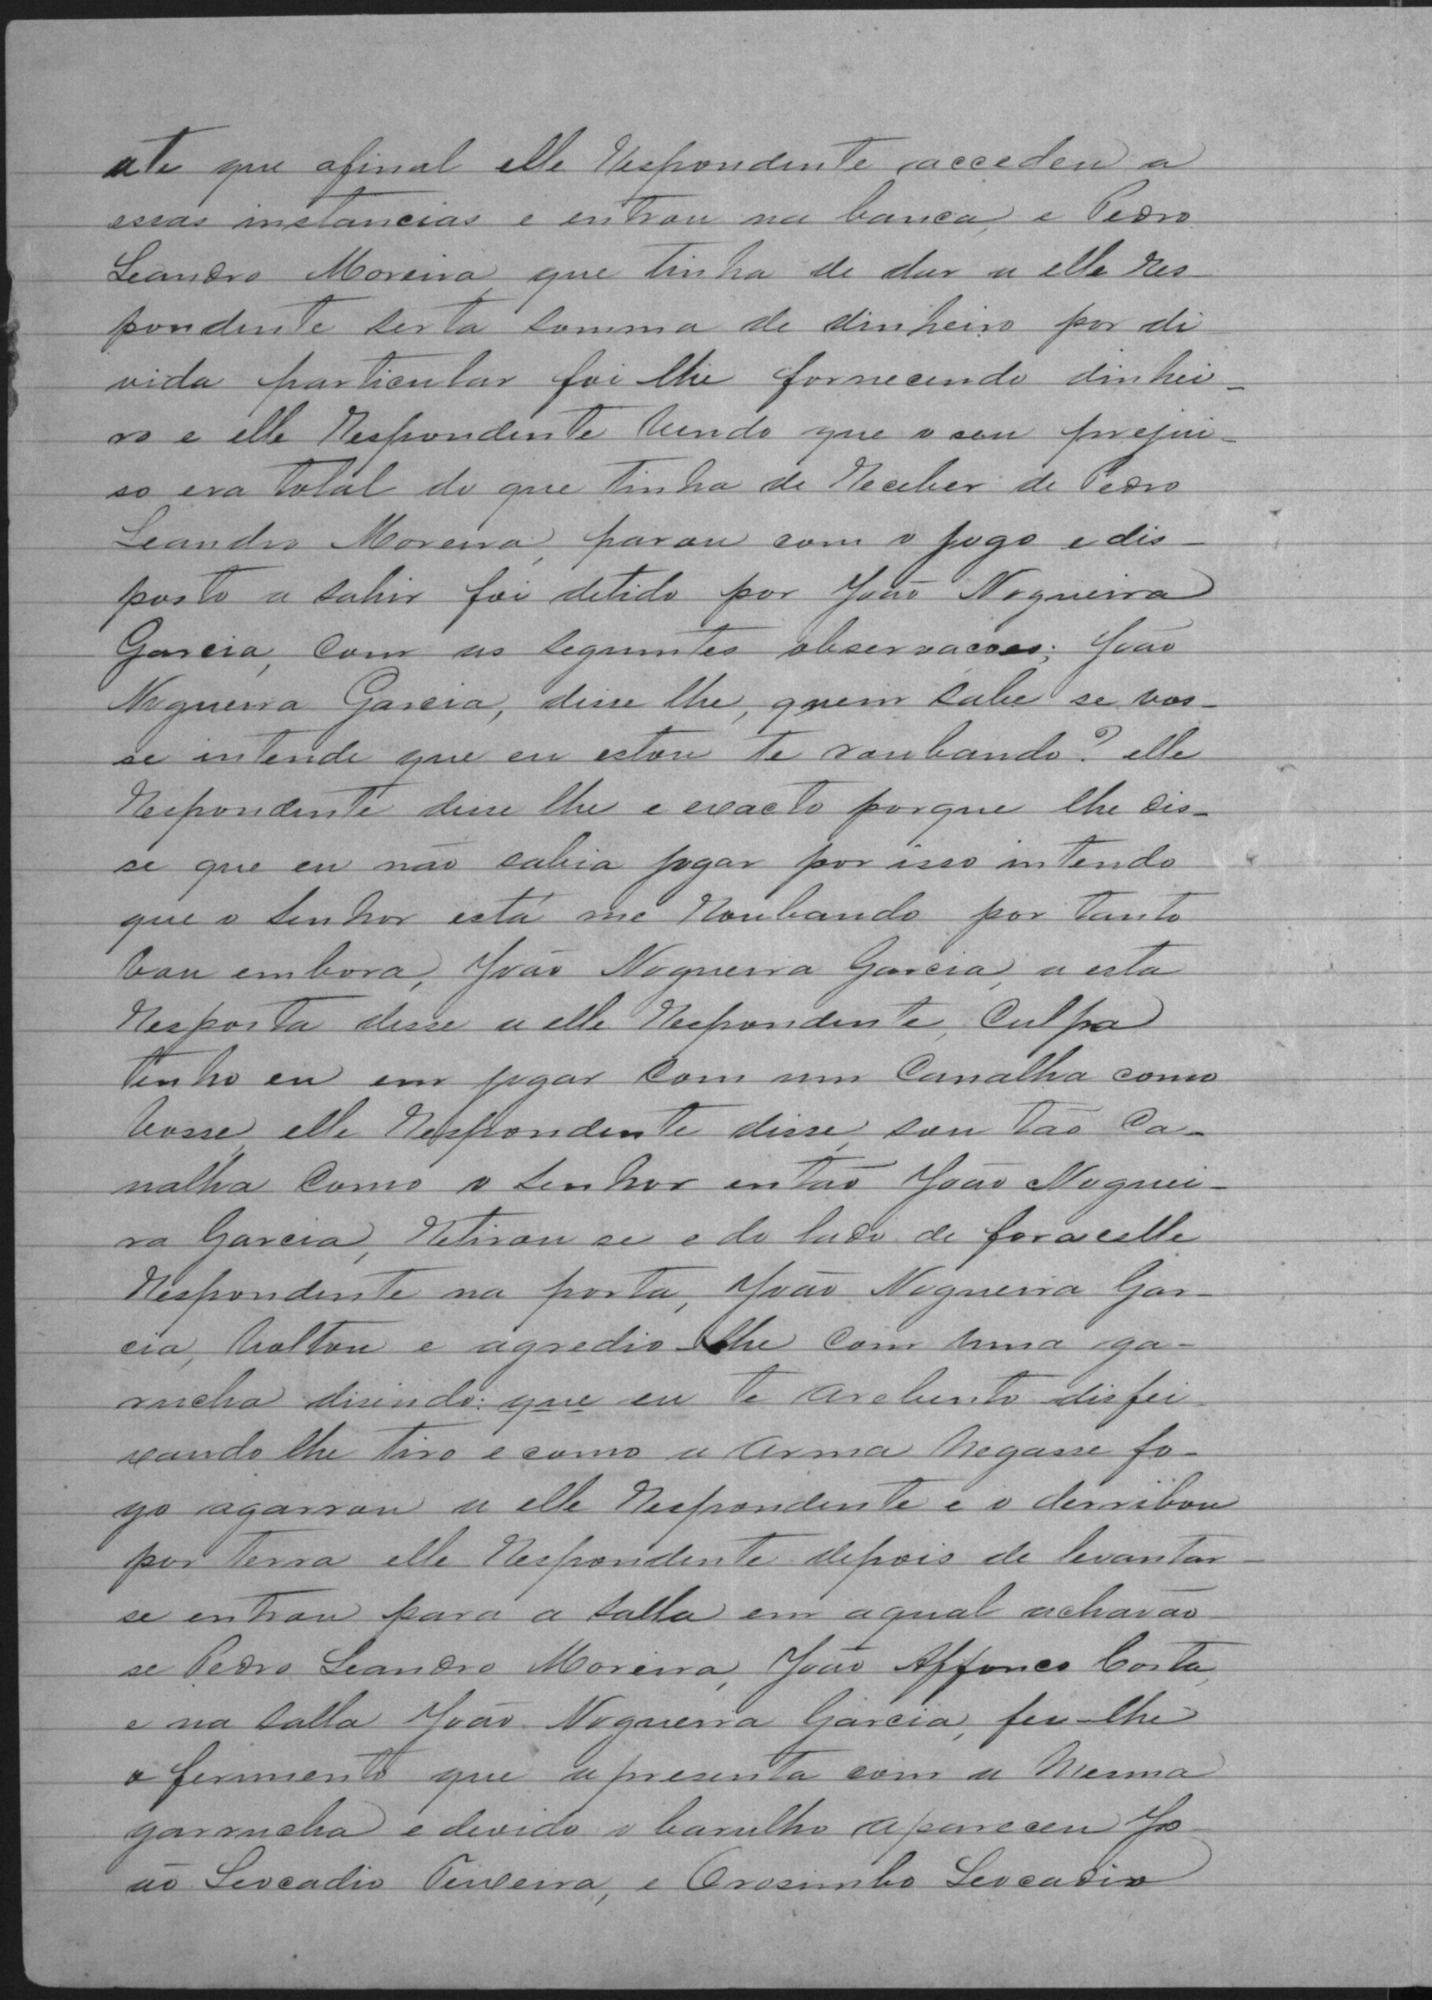 ate que afinal elle Respondente accedeu a
essas instancias e entrou na banca, e Pedro
Leandro Moreira, que tinha de dar a elle Res-
pondente serta somma de dinheiro por di
vida particular foi lhe fornecendo dinhei-
ro e elle Respondente vendo que o seu prejui-
so era total do que tinha de Receber de Pedro
Leandro Moreira, parou com o jogo e dis-
posto a sahir foi detido por João Nogueira
Garcia, com as seguintes observacoes; João
Nogueira Garcia, disse lhe, quem sabe se vos-
se intende que eu estou te roubando? elle
Respondente disse lhe e exacto porque lhe dis-
se que eu não sabia jogar por isso intendo
que o senhor está me Roubando por tanto
vou embora, João Nogueira Garcia, a esta
Resposta disse a elle Respondente, Culpa
tenho eu em jogar com um Canalha como
vosse, elle Respondente disse, sou tão Ca-
nalha como o senhor então João Noguei-
ra Garcia, Retirou se e do lado de fora e elle
Respondente na porta, João Nogueira Gar-
cia, voltou e agredio-lhe com uma ga-
rucha disindo: que eu te arebento disfei
xando lhe tiro e como a arma negasse fo-
go agarrou a elle Respondente e o derribou
por terra elle Respondente depois de levantar-
se entrou para a salla em aqual achavão-
se Pedro Leandro Moreira, João Affonco Costa,
e na salla João Nogueira Garcia, fes-lhe
o ferimento que apresenta com a mesma
garrucha e devido o barulho apareceu Jo-
ão Leocadio Teixeira, e Orosimbo Leocadio